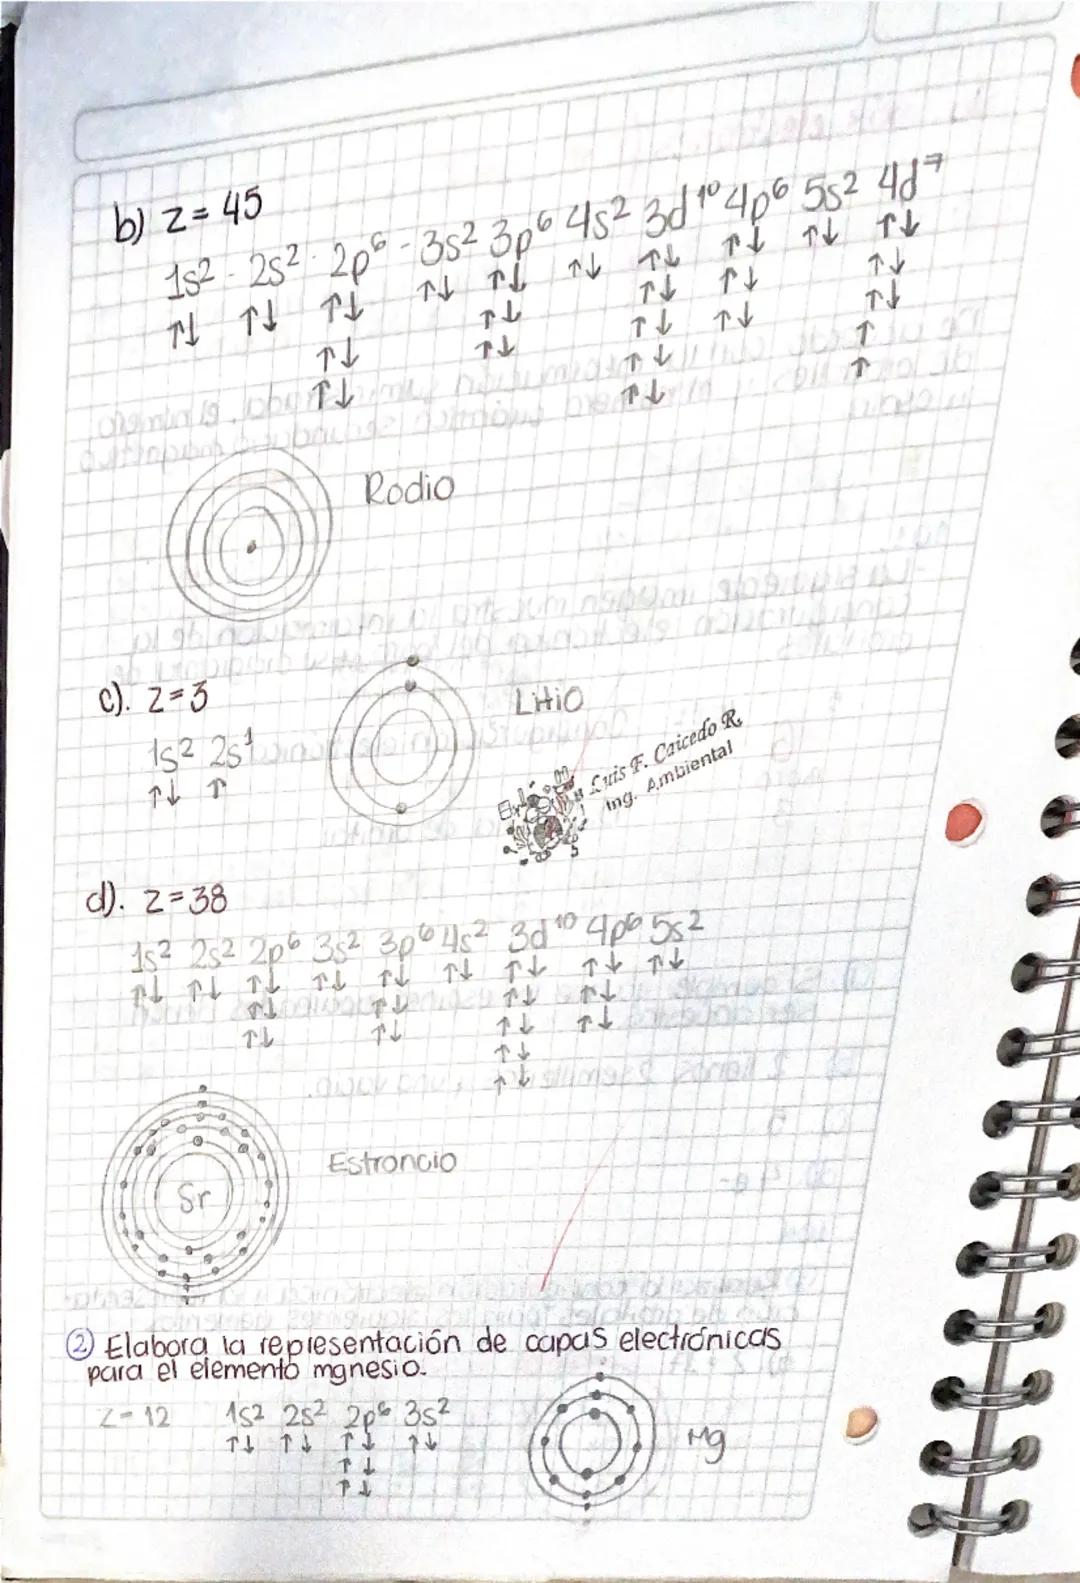 b) Z = 45
1s² - 2s² - 2p⁶ - 3s² 3p⁶ 4s² 3d¹⁰ 4p⁶ 5s² 4d⁷
↑↓ ↑↓ ↑↓ ↑↓ ↑↓ ↑↓ ↑↓ ↑↓ ↑↓ ↑↓
↑↓ ↑↓ ↑↓ ↑↓ ↑↓
↑↓ ↑↓ ↑↓ ↑↓ ↑↓
↑↓ ↑
↑↓ ↑
Rodio
c). Z = 3
Litio
1s² 2s¹
↑↓ ↑
Luis F. Caicedo R.
Ing. Ambiental
d). Z = 38
1s² 2s² 2p⁶ 3s² 3p⁶ 4s² 3d¹⁰ 4p⁶ 5s²
↑↓ ↑↓ ↑↓ ↑↓ ↑↓ ↑↓ ↑↓ ↑↓ ↑↓
↑↓ ↑↓ ↑↓ ↑↓
↑↓ ↑↓ ↑↓ ↑↓
↑↓
↑↓
Estroncio
Sr
② Elabora la representación de capas electrónicas
para el elemento mgnesio.
Z - 12 1s² 2s² 2p⁶ 3s²
↑↓ ↑↓ ↑↓ ↑↓
↑↓
↑↓
Mg